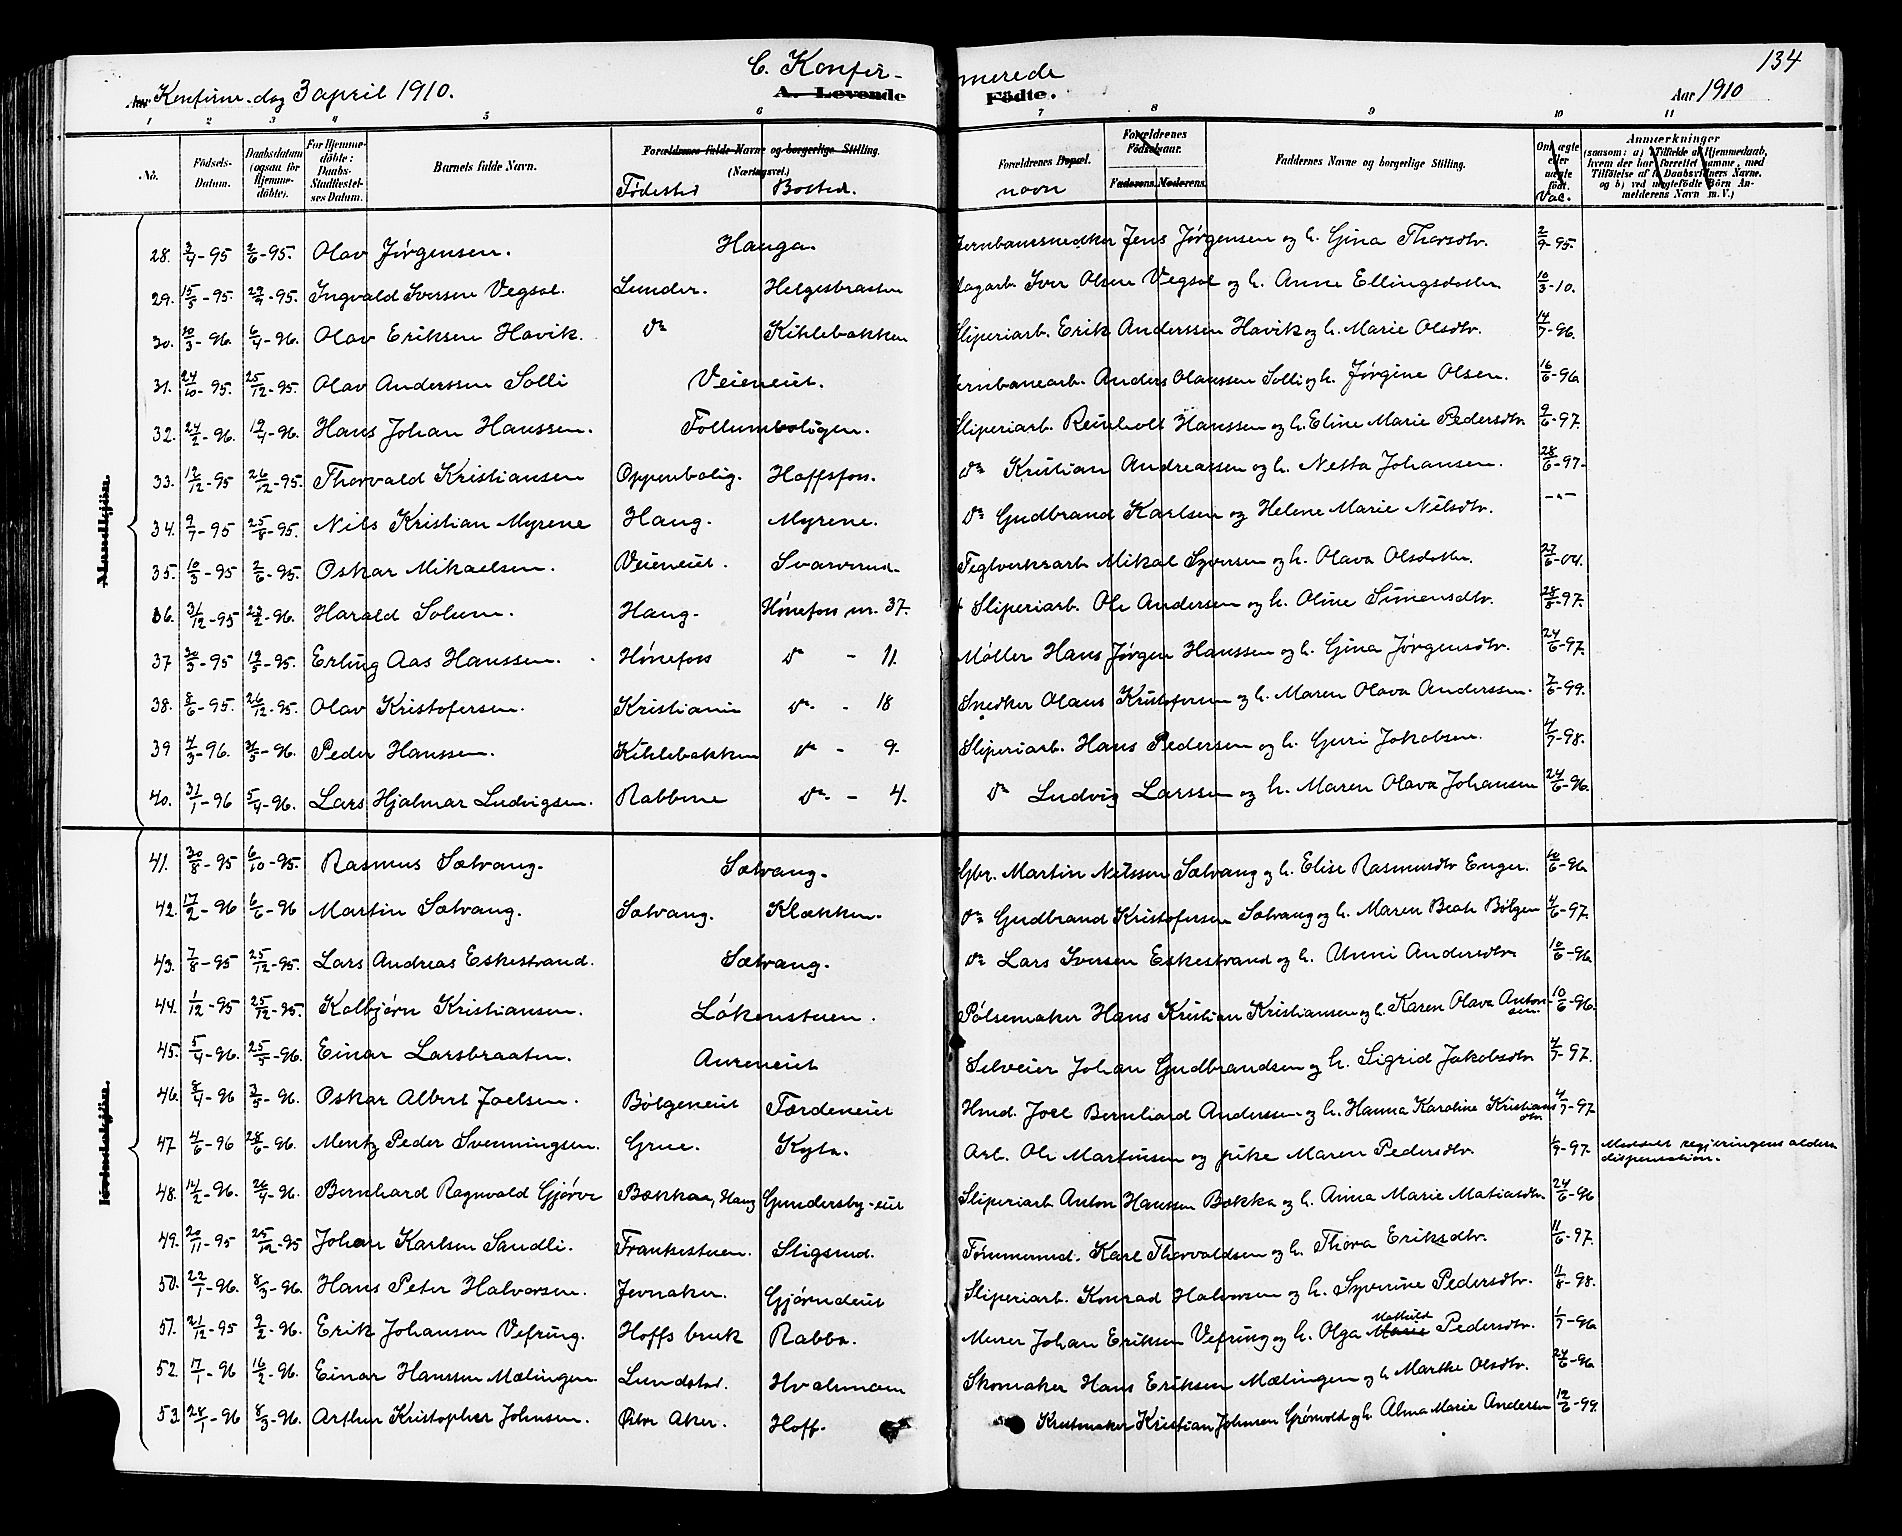 134
C. Konfir- merede
Aar Konfirm. dag 3 april 1910.
A. Levende Födte.
Aar 1910
1 2 3 4 5 6 7 8 9 10 11
No.
Födsels-Datum.
Daabsdatum (ogsaa for Hjemmedöbte).
For Hjemmedöbte: Daabs-Stadfæstelses Datum.
Barnets fulde Navn.
Forældrenes fulde Navne og borgerlige Stilling. (Næringsvei.)
Fødested Bosted.
Forældrenes Bopæl. navn
Forældrenes Födselsaar.
Faderens. Moderens.
Faddernes Navne og borgerlige Stilling.
Om ægte eller uægte født. Vac.
Anmærkninger
(saasom: a) i Tilfælde af Hjemmedaab, hvem der har forrettet samme, med Tilföielse af Daabsvidners Navne. og b) ved uægtefödte Börn Anmelderens Navn m. V.)
Mandkjön.
28. 3/4-95 2/6-95. Olav Jørgensen. Hauga. Jernbanesnedker Jens Jørgensen og h. Gina Thorsdtr. 2/9-95.
29. 15/3-95. 29/4-95. Ingvald Iversen Vegsal. Lunder. Helgesbraaten Dagarb. Iver Olsen Vegsal og h. Anne Ellingsdatter 10/3-10.
30. 30/3-96. 6/4-96. Olav Eriksen Havik. do Kihlebakken Sliperiarb. Erik Anderssen Havik og h. Marie Olsdtr. 14/7-96.
31. 24/10-95. 25/12-95. Olav Anderssen Solli Veieneiet. Jernbanearb. Anders Olaussen Solli og h. Jørgine Olsen. 16/6-96
32. 24/2-96. 19/4-96. Hans Johan Hanssen. Follumboligen. Sliperiarb. Reinholt Hanssen og h. Eline Marie Pedersdtr 9/6-97.
33. 12/12-95 26/12-95. Thorvald Kristiansen Oppenbolig. Hoffsfoss. do Kristian Andreassen og h. Netta Johansen. 28/6-97.
34. 9/7-95 25/8-95. Nils Kristian Myrene Haug. Myrene. do Gudbrand Karlsen og Helene Marie Nilsdtr. -"-
35. 10/3-95 2/6-95. Oskar Mikaelsen. Veieneiet. Svarverud. Teglverksarb Mikal Syversen og h. Olava Olsdatter. 27/6-04.
36. 31/12-95 23/2-96. Harald Solum. Haug. Hønefoss nr. 37. Sliperiarb. Ole Andersen og h. Oline Simensdtr. 28/8-97.
37 30/3-95 19/5-95. Erling Aas Hanssen. Hønefoss do - 11. Møller Hans Jørgen Hanssen og h. Gina Jørgensdtr. 24/6-97.
38. 8/6-95. 26/12-95. Olav Kristofersen. Kristiania do - 18 Snedker Olaus Kristofersen og h. Maren Olava Anderssen. 7/6-99.
39 4/3-96. 31/5-96. Peder Hanssen. Kihlebakken do - 9. Sliperiarb. Hans Pedersen og h. Guri Jakobsen. 4/7-98.
40. 31/1-96 5/4-96. Lars Hjalmar Ludvigsen. Rabbene do - 4. do Ludvig Larssen og h. Maren Olava Johansen 24/6-96.
Kvindekjön.
41. 30/8-95 6/10-95. Rasmus Sætvang. Sætvang. Gbr. Martin Nilssen Sætvang og h. Elise Rasmusdtr Enger. 10/6-96
42. 17/2-96 6/6-96 Martin Sætvang. Sætvang. Klækken. do Gudbrand Kristofersen Sætvang og h. Maren Beate Bølgen 4/6-97.
43. 7/8-95 25/12-95. Lars Andreas Eskestrand. Sætvang. do Lars Iversen Eskestrand og h. Unni Andersdtr 10/6-96
44. 1/12-95 25/12-95. Kolbjørn Kristiansen. Løkenstuen. Pølsemaker Hans Kristian Kristiansen og h. Karen Olava Antonsen. 10/6-96.
45. 5/4-96. 25/5-96. Einar Larsbraaten. Aureneiet Selveier Johan Gudbrandsen og h. Sigrid Jakobsdtr 4/7-97.
46. 8/4-96 3/5-96. Oskar Albert Joelsen. Bølgeneiet Færdeneiet Hmd. Joel Bernhard Anderssen og h. Hanna Karoline Kristiansdtr. 4/7-97
47 4/6-96 28/6-96. Mentz Peder Svenningsen. Grue. Kyla. Arb. Ole Martinsen og pike Maren Pedersdtr. 1/9-97. Meddelt regjeringens alders dispensation.
48. 14/2-96. 26/4-96. Bernhard Ragnvald Gjørve Bækkaa, Haug Gundersby-eiet Sliperiarb Anton Hanssen Bækka og h. Anna Marie Matiasdtr 24/6-96
49. 20/11-95 25/12-95 Johan Karlsen Sandli. Frankestuen. Stigsrud. Tømmermd. Karl Thorvaldsen og h. Thora Eriksdtr. 11/6-97.
50. 22/1-96. 8/3-96. Hans Peter Halvorsen. Jevnaker. Gjørudeiet Sliperiarb. Konrad Halvorsen og h. Syverine Pedersdtr. 11/8-98.
51. 21/12-95 2/2-96. Erik Johansen Vefring. Hoffs bruk Rabba. Murer Johan Eriksen Vefring og h. Olga Marie Mathilde Pedersdtr. 1/7-96
52. 17/1-96 16/2-96. Einar Hanssen Mælingen. Lundstad. Hvalsmoen Skomaker Hans Eriksen Mælingen og h Marthe Olsdtr. 24/6-96
53. 28/1-96 8/3-96. Arthur Kristopher Johnsen. Østre Aker. Hoff. Kurvmaker Kristian Johnsen Grønvold og h. Alma Marie Andersen 12/6-99.